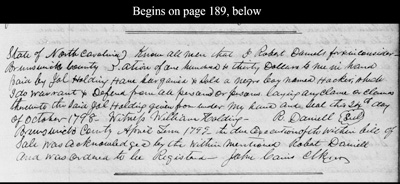 Begins on page 189, below
State of North Carolina) Know all men that I Robert Daniels for & in consider-
Brunswick County } ation of one hundred & thirty Dollars to me in hand
Paid by Jol Holding Have bargained & sold a negro boy named Hackey, which
I do warrant & Defend from all persons or persons laying any claim or claims
thereunto the said Jol Holding given from under my hand and seal this 24th day
of October 1798 - Witness William Holding - R. Daniell (Seal)
Brunswick County April Term 1792 the due Execution of the within bill of
Sale was acknowledged by the within mentioned Robert Daniell
and was ordered to be Registered John Cains Clk